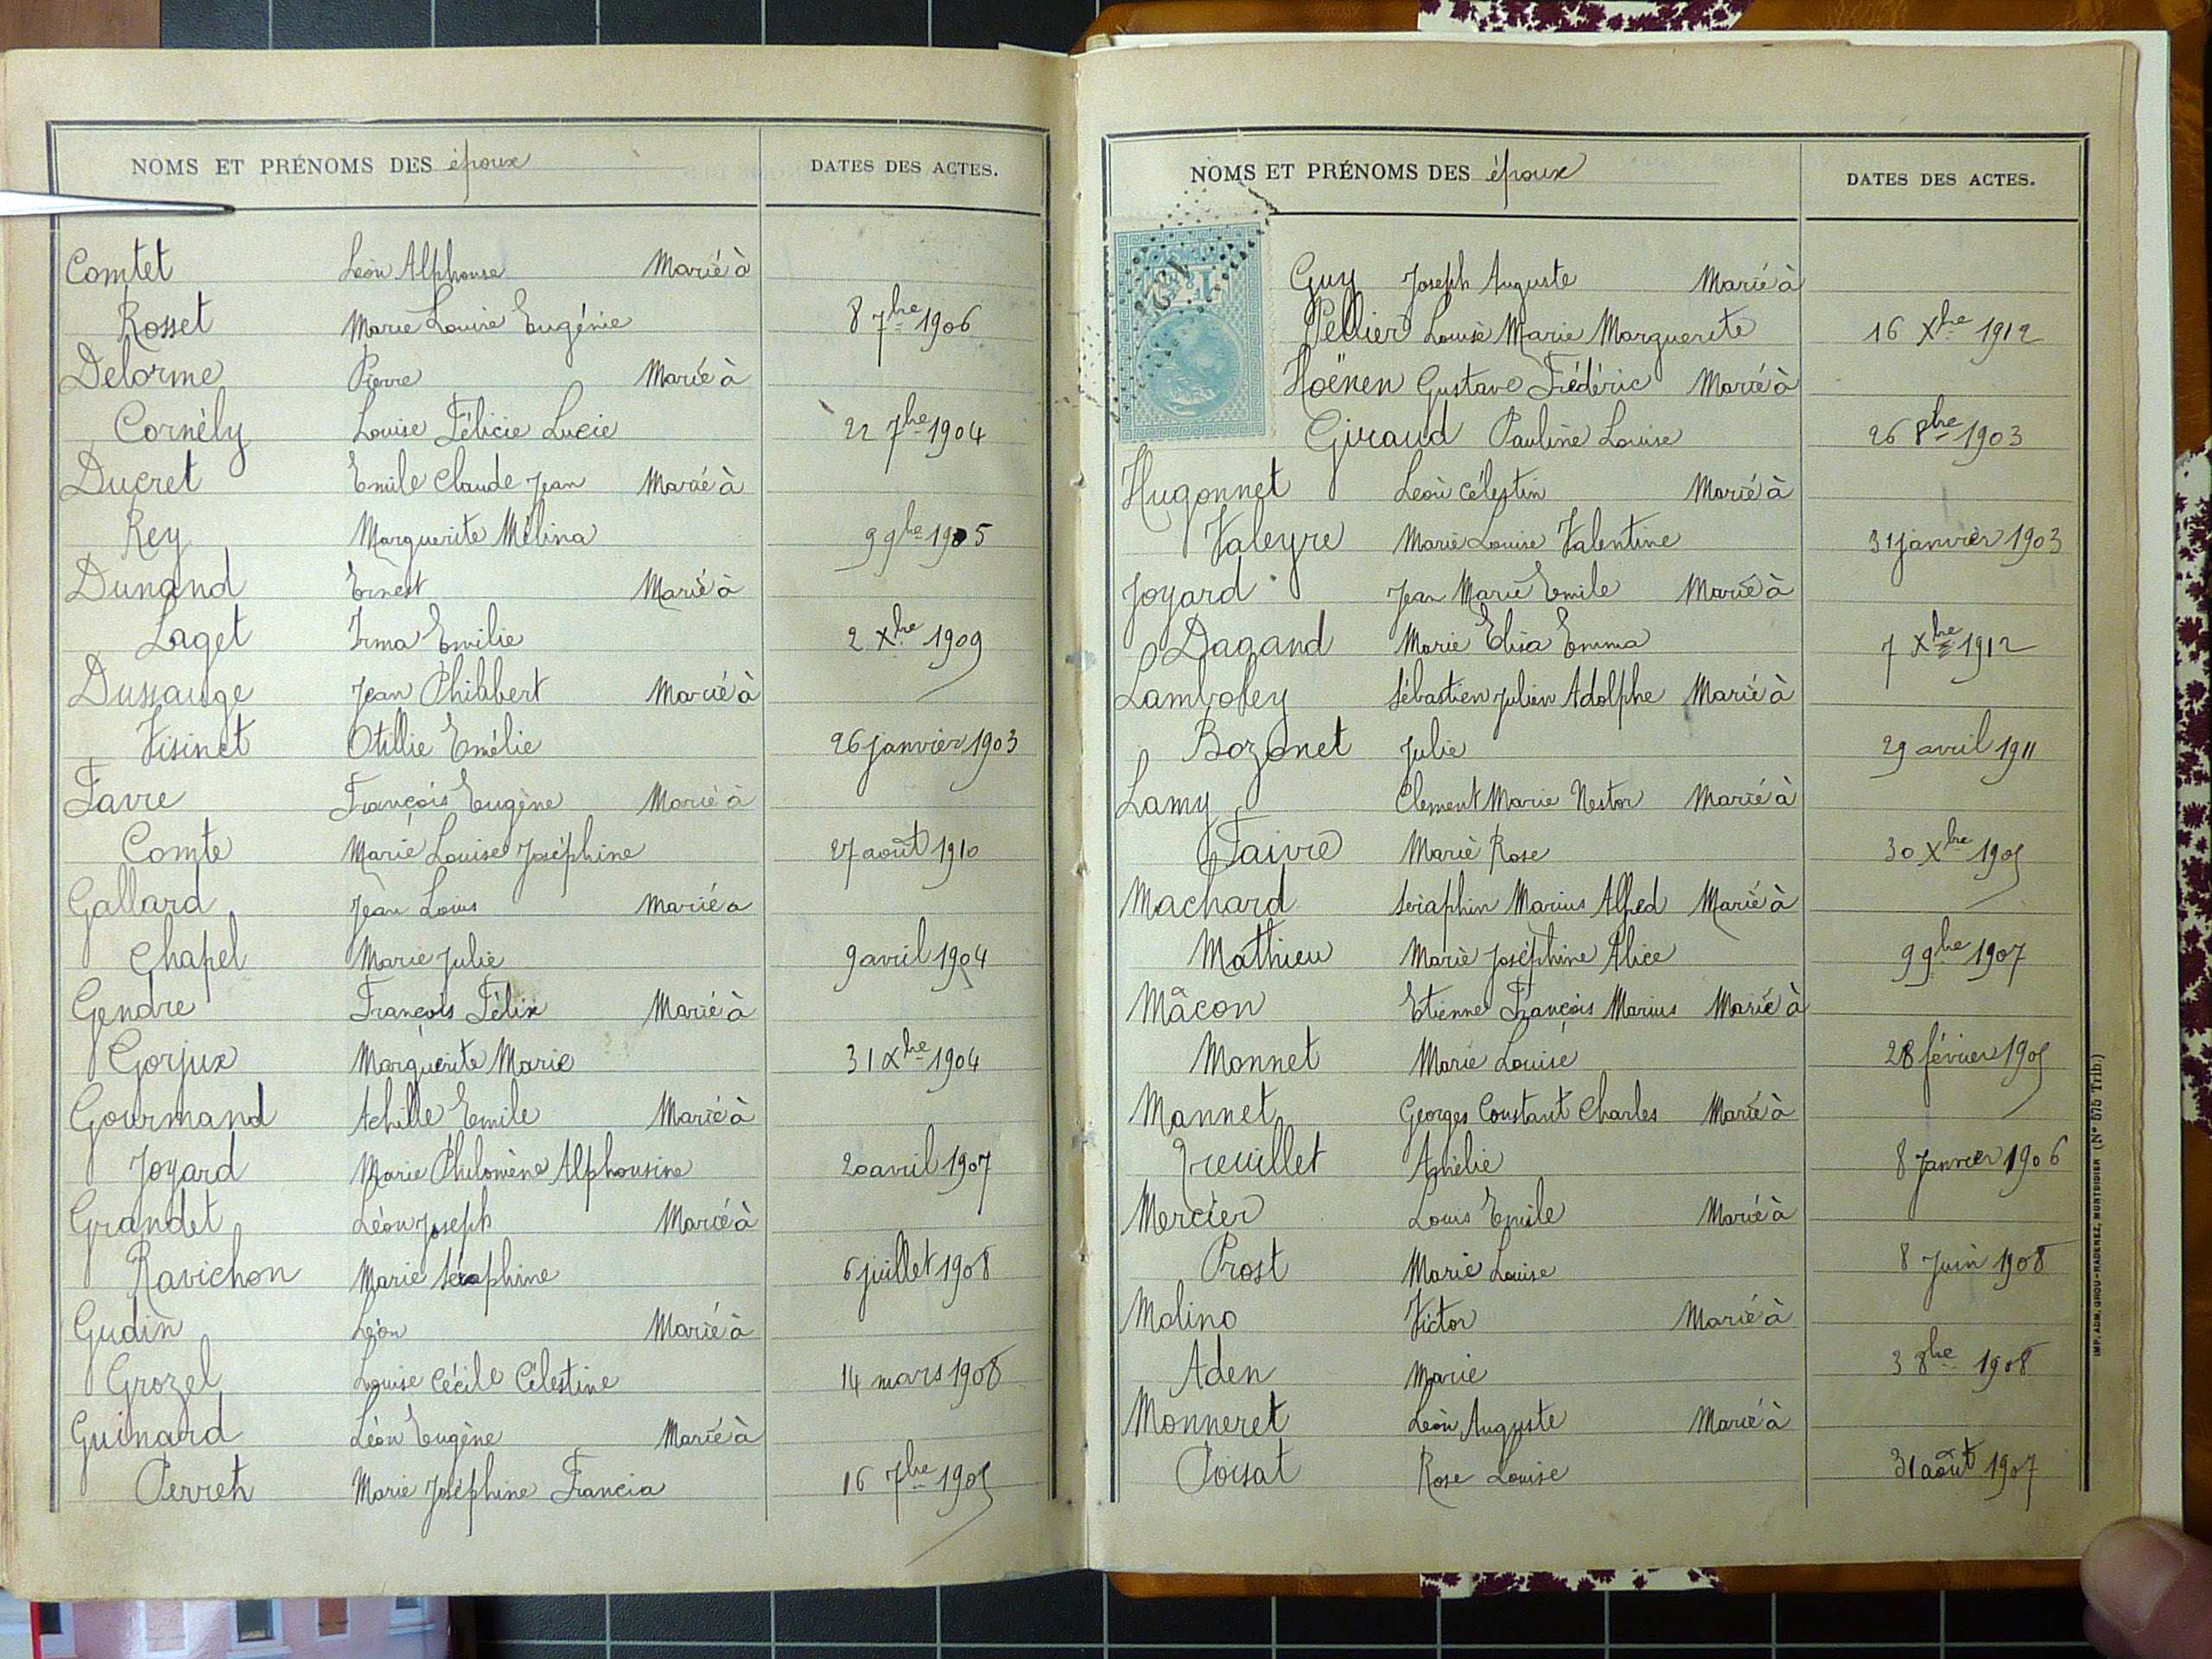 NOMS ET PRÉNOMS DES époux DATES DES ACTES.
Comtet Léon Alphonse Marié à
Rosset Marie Louise Eugénie 8 7bre 1906
Delorme Pierre Marié à
Cornély Louise Félicie Lucie 22 7bre 1904
Ducret Emile Claude Jean Marié à
Rey Marguerite Mélina 9 9bre 1905
Dunand Ernest Marié à
Laget Irma Emilie 2 Xbre 1909
Dussauge Jean Philibert Marié à
Visinet Otillie Emélie 26 janvier 1903
Favre François Eugène Marié à
Comte Marie Louise Joséphine 27 août 1910
Gallard Jean Louis Marié a
Chapel Marie Julie 9 avril 1904
Gendre François Félix Marié à
Gorjux Marguerite Marie 31 Xbre 1904
Gourmand Achille Emile Marié à
Joyard Marie Philomène Alphonsine 20 avril 1907
Grandet Léon Joseph Marié à
Ravichon Marie Séraphine 6 juillet 1908
Gudin Léon Marié à
Grozel Louise Cécile Célestine 14 mars 1908
Guinard Léon Eugène Marié à
Perret Marie Joséphine Francia 16 7bre 1905
NOMS ET PRÉNOMS DES époux DATES DES ACTES.
Guy Joseph Auguste Marié à
Pellier Louise Marie Marguerite 16 Xbre 1912
Hoënen Gustave Frédéric Marié à
Giraud Pauline Louise 26 8bre 1903
Hugonnet Léon Célestin Marié à
Valeyre Marie Louise Valentine 31 janvier 1903
Joyard Jean Marie Emile Marié à
Dagand Marie Elisa Emma 7 Xbre 1912
Lamboley Sébastien Julien Adolphe Marié à
Bozonet Julie 29 avril 1911
Lamy Clement Marie Nestor Marié à
Faivre Marie Rose 30 Xbre 1905
Machard Séraphin Marius Alfred Marié à
Mathieu Marie Joséphine Alice 9 9bre 1907
Mâcon Etienne François Marius Marié à
Monnet Marie Louise 28 février 1905
Mannet Georges Constant Charles Marié à
Treuillet Amélie 8 Janvier 1906
Mercier Louis Emile Marié à
Prost Marie Louise 8 Juin 1908
Molino Victor Marié à
Aden Marie 3 8bre 1908
Monneret Léon Auguste Marié à
Poisat Rose Louise 31 août 1907
IMP. ADM. GROU-RADENEZ, MONTDIDIER (No 575 Trib.)